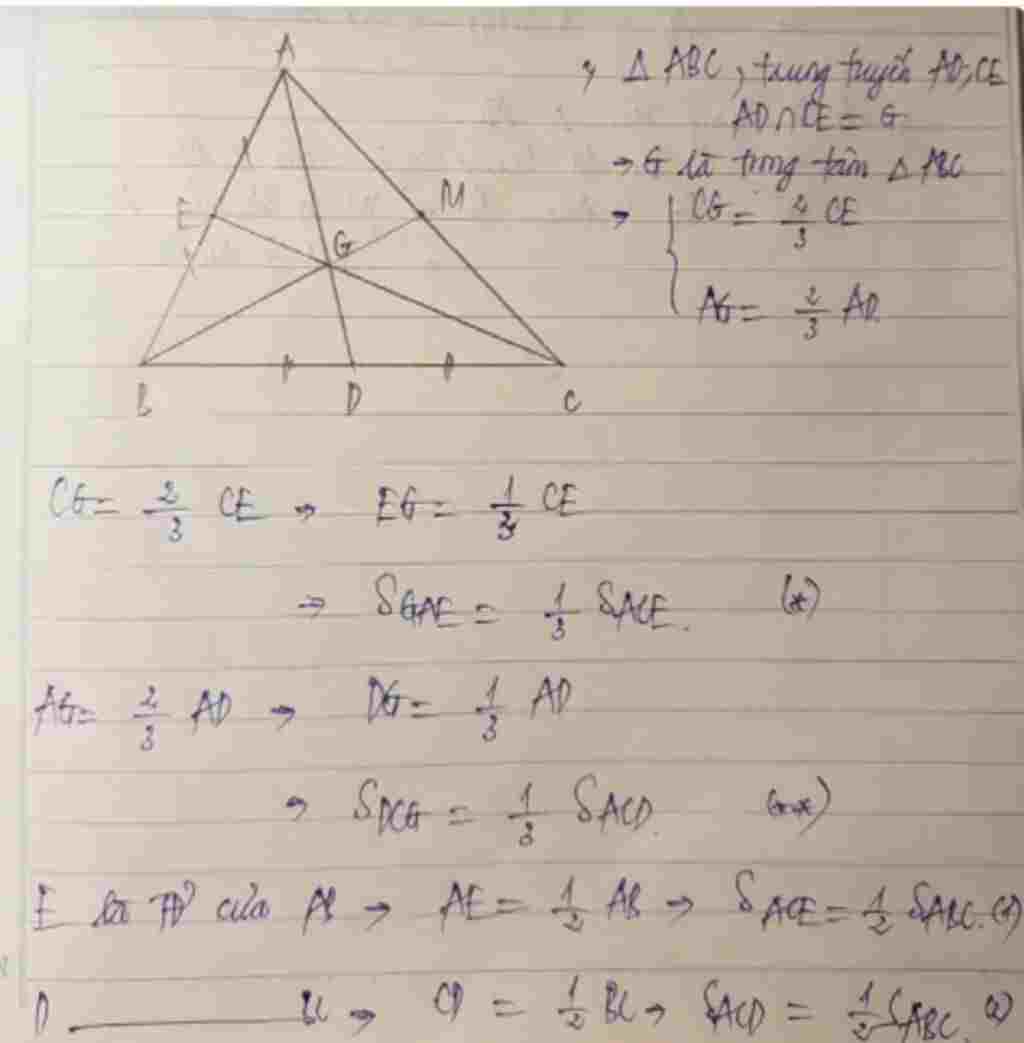 A
, Δ ABC, trung tuyến AD, CE
AD ∩ CE = G
→ G là trọng tâm Δ ABC
→ { CG = 2/3 CE
AG = 2/3 AD.
E
M
G
B
D
C
CG = 2/3 CE → EG = 1/3 CE
→ SGAE = 1/3 SACE. (*)
AG = 2/3 AD → DG = 1/3 AD
→ SDCG = 1/3 SACD. (**)
E là TĐ của AB → AE = 1/2 AB → SACE = 1/2 SABC. (1)
D ———— BC → CD = 1/2 BC → SACD = 1/2 SABC. (2)